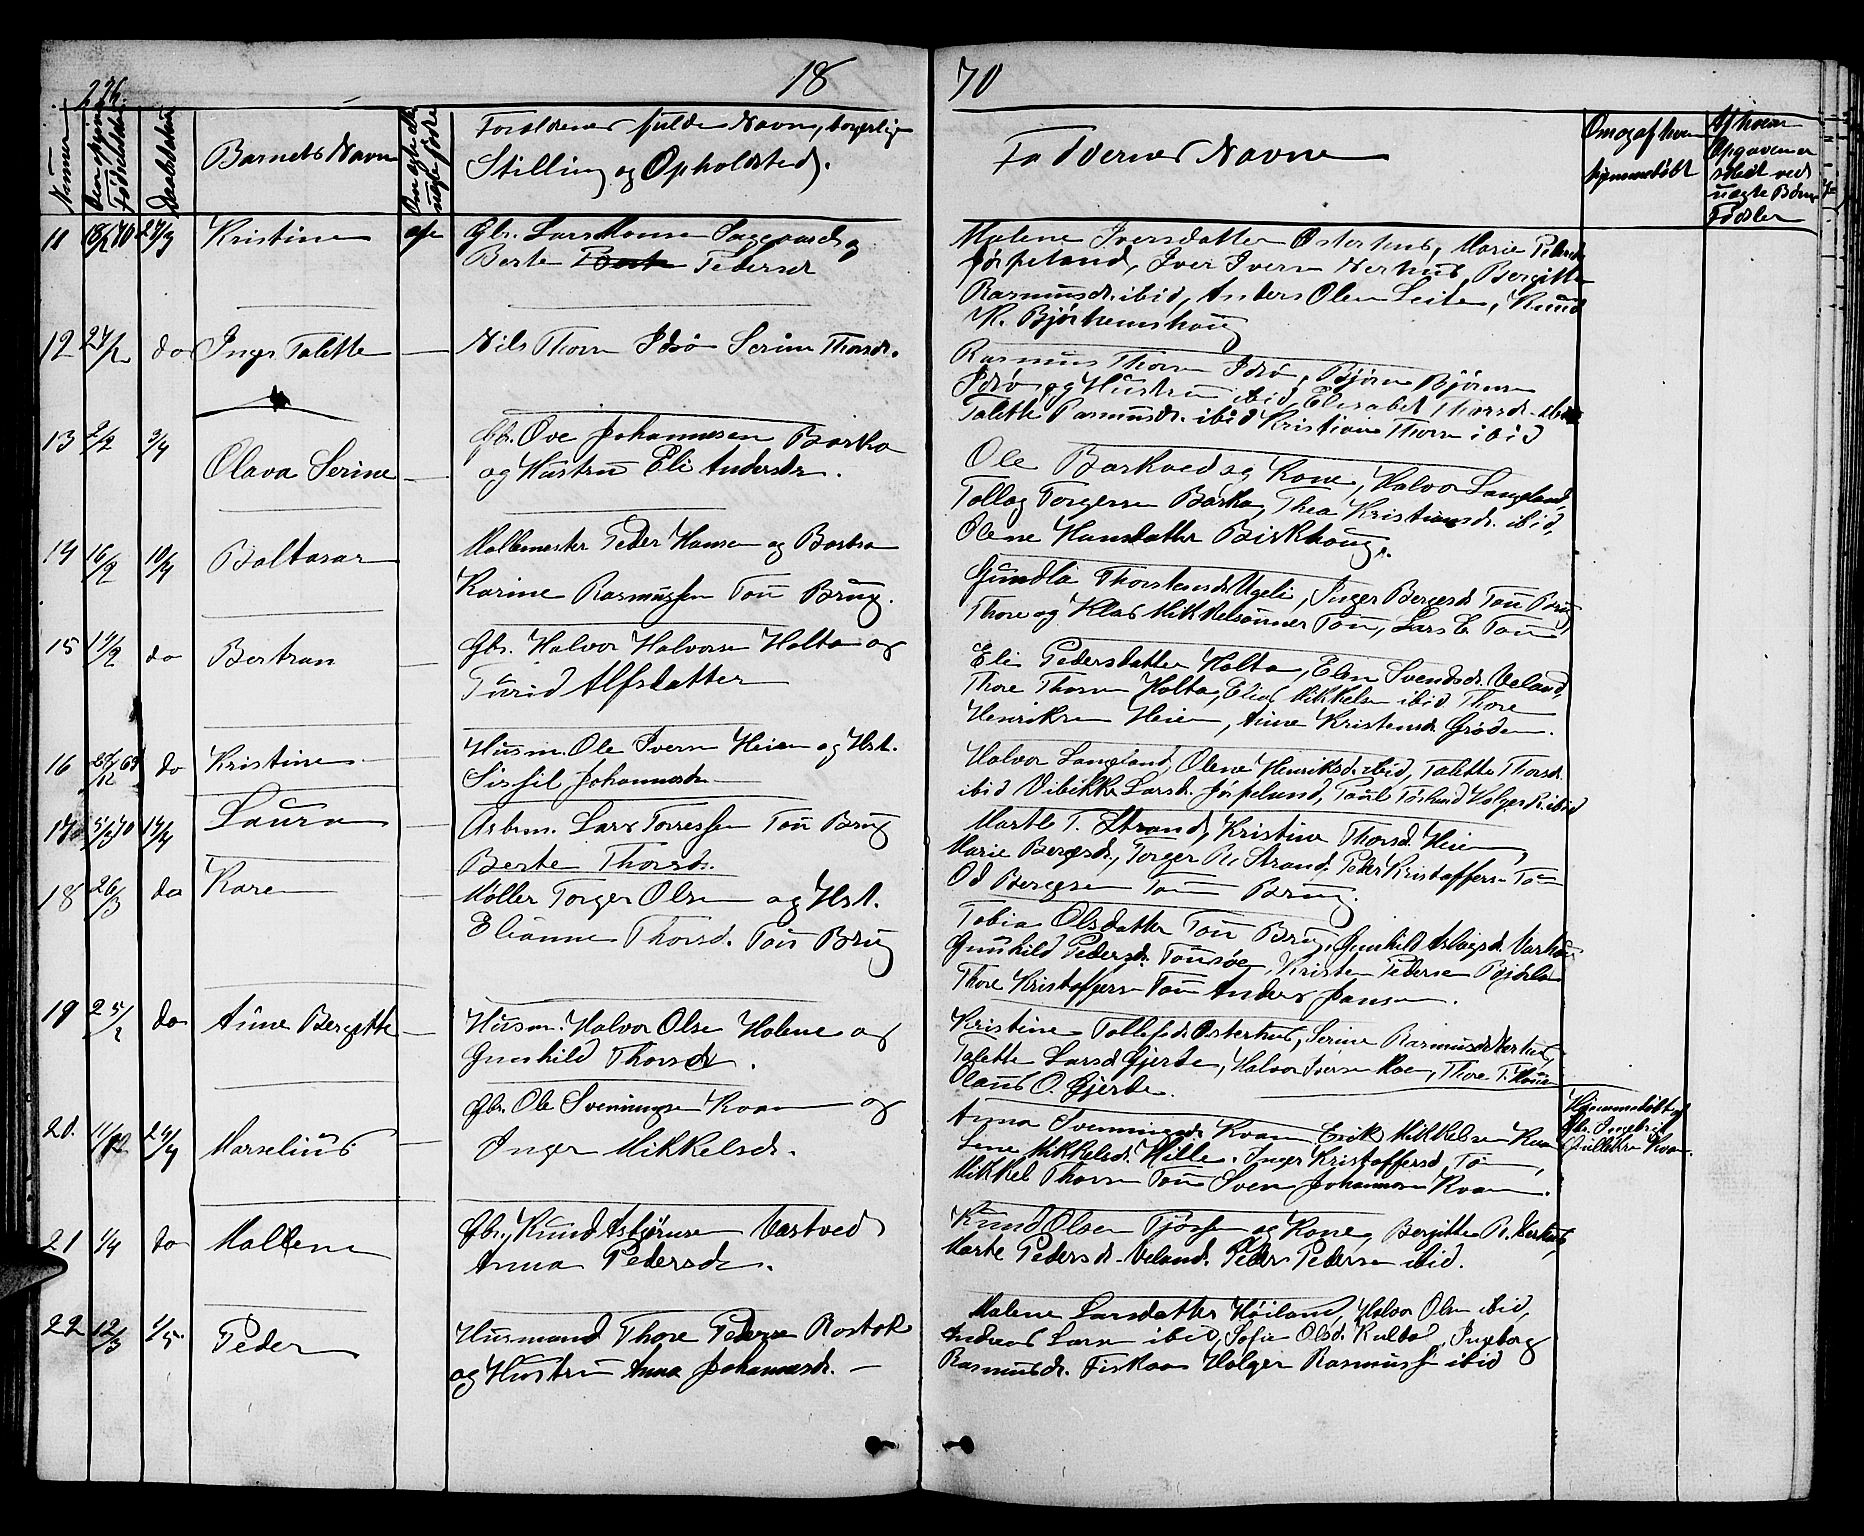 226.
18
70
Nummer
Fødselsdatum
Daabsdatum
Barnets Navn
Om ægte eller uægte fødte
Forældrenes fulde Navn, borgerlige
Stilling og Opholdsted.
Faddernes Navne
Om og af hvem
hjemmedøbt
Af hvem
Opgaven er
skeet ved
uægte Børns
Fødsler
11 18/2 70 27/3 Kristine
Gbr. Lars Hansen og
Berte Pedersd
Malene Iversdatter Østerhus, Marie
Jørpeland, Iver Iversen Nerhus, Bergitte
Rasmusdr. ibid, Anders Olsen Leite, Knud
K. Bjørheimshoug
12 27/2 do Inger Talette —
Nils Thorsen Idsø Serine Thorsdr.
Rasmus Thorsen Idsø, Bjørn Bjørnsen
Idsø og Hustru ibid, Elisabet Thorsdr. ibid
Talette Rasmusdr. ibid Kristiane Thorsen ibid
13 2/2 3/4 Olava Serine —
Gbr. Ove Johannesen Barka
og Hustru Eli Andersdr.
Ole Barkved og Kone, Halvor Langeland,
Tollag Torgersen Barka, Thea Kristiansdr. ibid,
Olene Hansdatter Birkhoug.
14 16/2 10/4 Baltasar
Møllemester Peder Hansen og Barbra
Karine Rasmussen Tou Brug.
Gundla Thorstensdr. Ugeli, Inger Bergesd. Tou Brug
Thore og Klas Mikkelsønner Tou, Lars E. Tou
15 17/2 do Bertran —
Gbr. Halvor Halvorsen Holta og
Turid Alfsdatter
Eli Pedersdatter Holta, Elen Svendsdr. Veland,
Thore Thorsen Holta, Elias Mikkelsen ibid Thore
Henriksen Heien, Anne Kristensdr. Grøden.
16 /12 69 do Kristine
Husm. Ole Iversen Heien og Hst.
Sissil Johannesdr.
Halvor Langeland, Olene Henriksdr. ibid, Talette Thorsdr.
ibid Vibikke Larsdr. Jørpeland, ibid
17 5/3 70 17/4 Laura —
Arbm. Lars Torressen Tou Brug
Berte Thorsdr.
Marte T. Strand, Kristine Thorsd. Heien,
Marie Bergesd., Torger R. Strand, Peder Kristoffersen Tou
Od Bergesen Tou Brug.
18 26/3 do Karen —
Møller Torger Olsen og Hst.
Elianne Thorsd. Tou Brug
Tobia Olsdatter Tou Brug, Gunhild Aslagsd.
Gunhild Pedersdr. Tousøen, Kristen Pedersen
Thore Kristoffersen Tou Anders Jansen.
19 25/2 do Anne Bergitte —
Husm. Halvor Olsen Holene og
Gunhild Thorsdr.
Kristine Tollefsdr. Østerhus, Serine Rasmusdr. Nerhus,
Talette Larsd. Gjerde, Halvor Iversen Moe, Thore T.
Olaus O. Gjerde.
20. 11/12 24/4 Marselius —
Gbr. Ole Svenningsen Kvam og
Inger Mikkelsdr.
Anna Svenningsdr. Kvam Erik Mikkelsen Kvam
Lene Mikkelsdr. Hille, Inger Kristoffersd. Tou,
Mikkel Thorsen Tou Sven Johannesen Kvam.
Hjemmedøbt af
Gbr. Ingebrit
Kvam.
21 1/4 do Mallene
Gbr. Knud Asbjørnsen Vastved
Anna Pedersdr.
Knud Olsen Tjøssem og Kone, Bergitte R. Nerhus,
Marte Pedersdr. Veland. Peder Pedersen ibid.
22 12/3 1/5. Peder
Husmand Thore Pedersen Rostøk
og Hustru Anna Johannesdr. —
Malene Larsdatter Høiland, Halvor Olsen ibid,
Andreas Larsen ibid, Sofie Olsdr. Ingeborg
Rasmusdr. Fiskaa Holger Rasmussen ibid